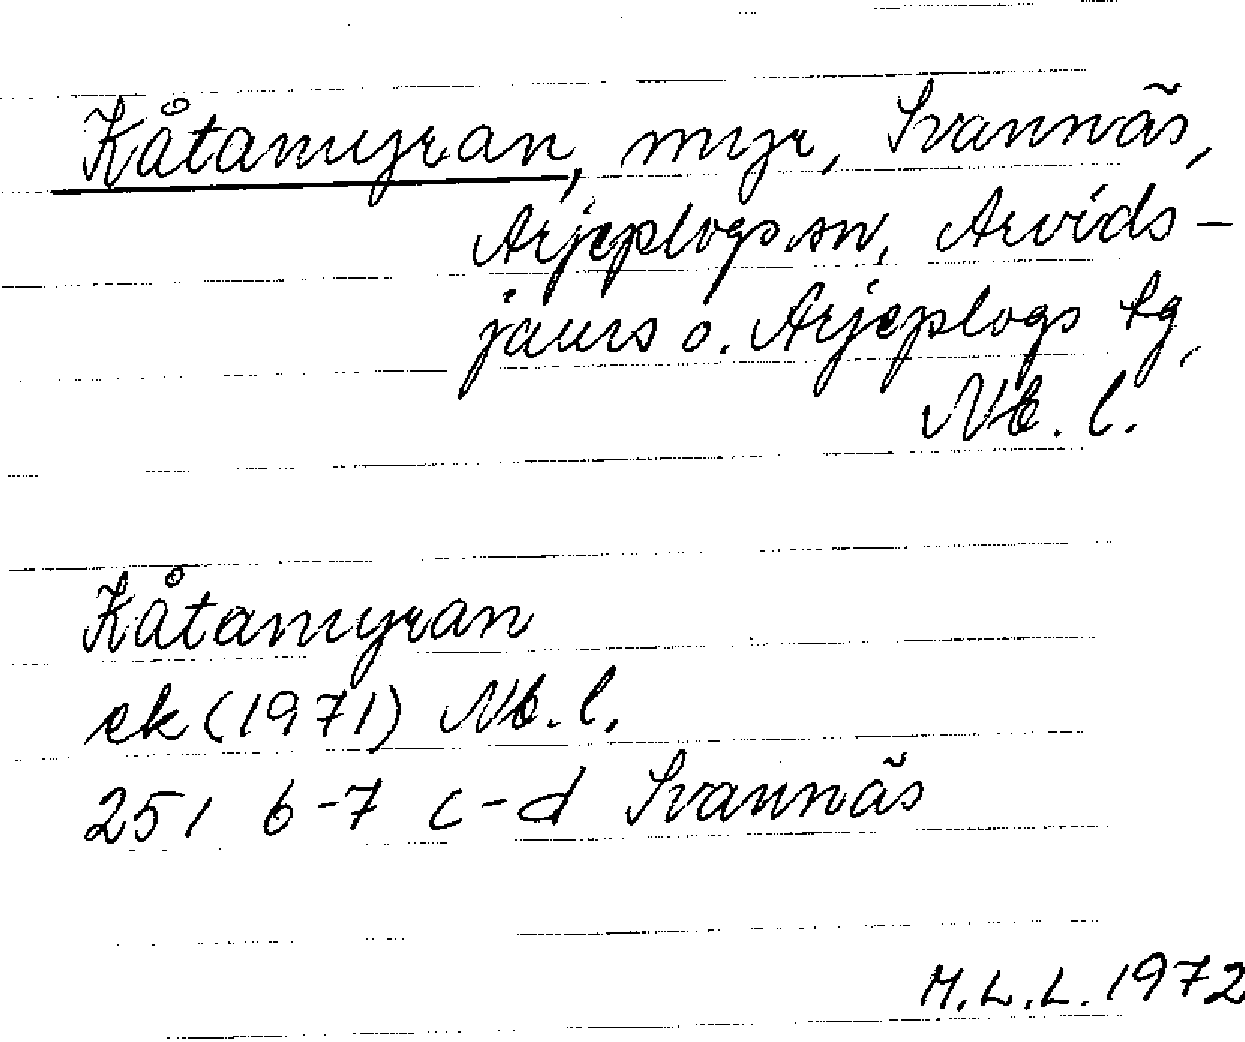 Kåtamyran, myr, Svannäs,
Arjeplogs sn, Arvids-
jaurs o. Arjeplogs tg,
Nb. l.
Kåtamyran
ek (1971) Nb. l.
25 I 6-7 c-d Svannäs
M.L.L. 1972